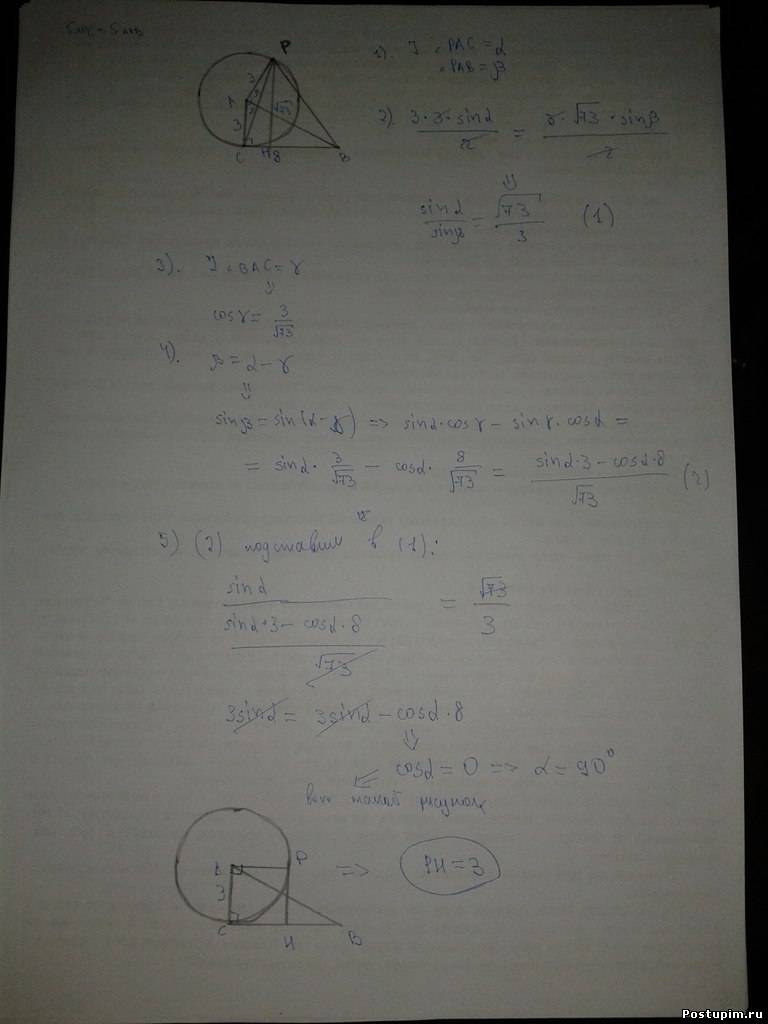 P
3
3
A
3
√73
C H 8 B
1). ] ∠PAC = α
∠PAB = β
2). 3·3·sinα / 2 = 3·√73·sinβ / 2
⇓
sinα / sinβ = √73 / 3 (1)
3). ] ∠BAC = γ
⇓
cosγ = 3 / √73
4). β = α - γ
⇓
sinβ = sin(α - γ) => sinα·cosγ - sinγ·cosα =
= sinα · 3/√73 - cosα · 8/√73 = sinα·3 - cosα·8 / √73 (2)
5) (2) подставим в (1):
sinα / (sinα·3 - cosα·8 / √73) = √73 / 3
3sinα = 3sinα - cosα·8
⇓
cosα = 0 => α = 90°
вот такой рисунок
A P
3 => PH = 3
C H B
Postupim.ru